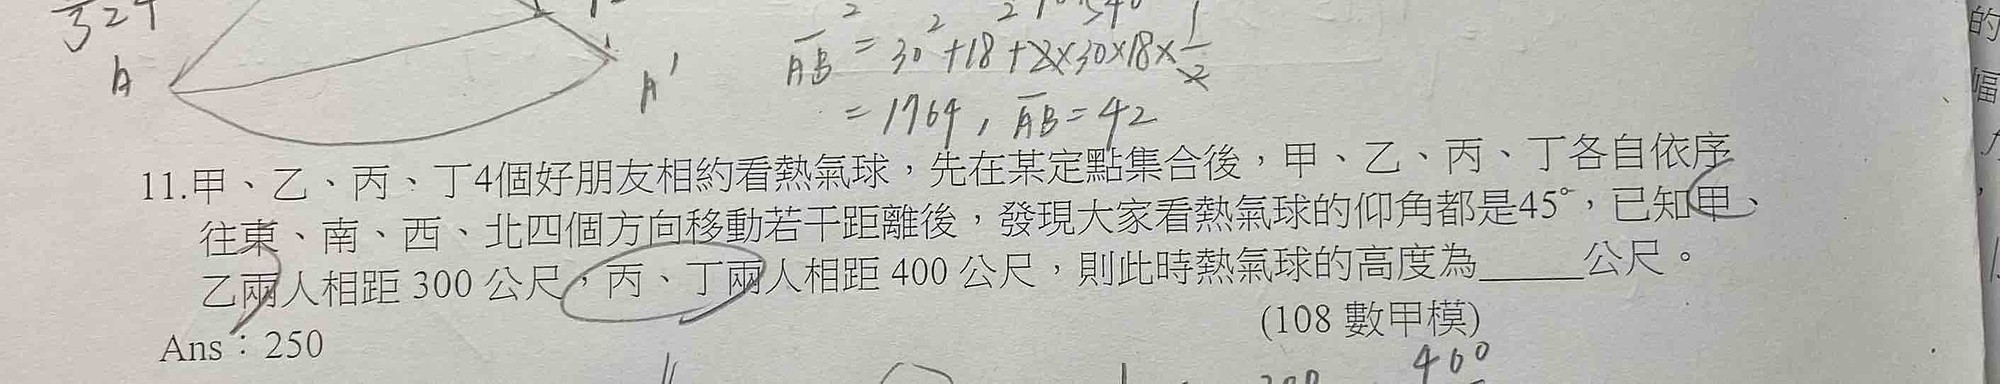 324
A
A'
AB² = 30²+18²+2×30×18×1/2
= 1764, AB = 42
的
幅
11.甲、乙、丙、丁4個好朋友相約看熱氣球，先在某定點集合後，甲、乙、丙、丁各自依序
往東、南、西、北四個方向移動若干距離後，發現大家看熱氣球的仰角都是45°，已知甲、
乙兩人相距 300 公尺，丙、丁兩人相距 400 公尺，則此時熱氣球的高度為_____公尺。
(108 數甲模)
Ans：250
400